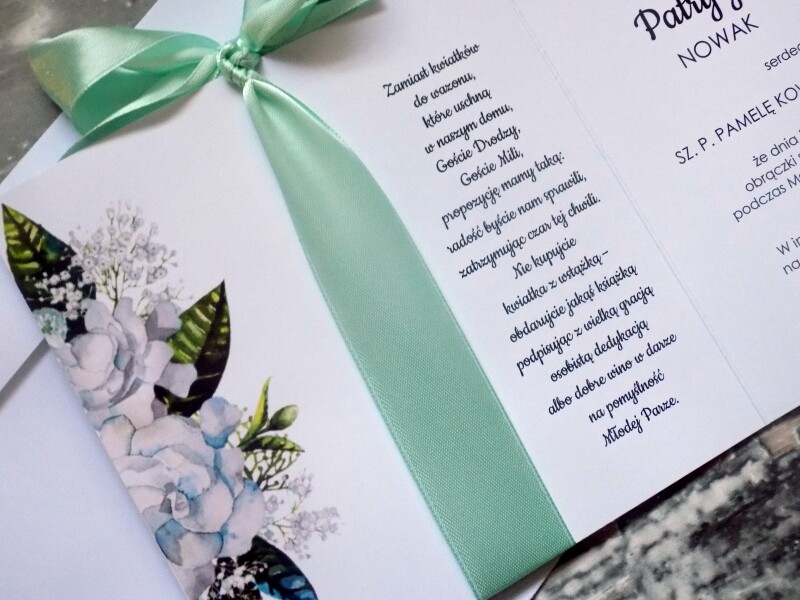 Zamiast kwiatków
do wazonu,
które uschną
w naszym domu,
Goście Drodzy,
Goście Mili,
propozycję mamy taką:
radość byście nam sprawili,
zatrzymując czar tej chwili.
Nie kupujcie
kwiatka z wstążką–
obdarujcie jakąś książką
podpisując z wielką gracją
osobistą dedykacją
albo dobre wino w darze
na pomyślność
Młodej Parze.
NOWAK
SZ. P. PAMELĘ
że dnia
obrączki
podczas
W